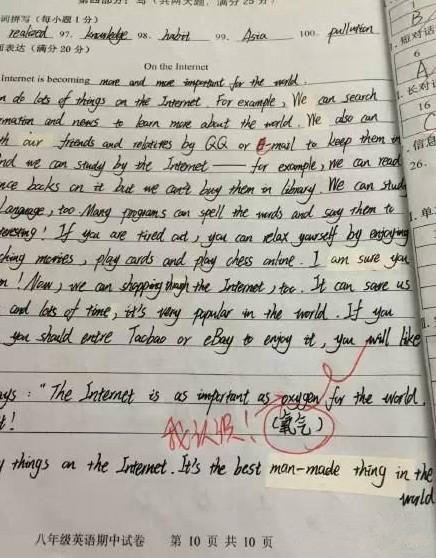 第四部分 写(共两大题，满分25分)
词拼写(每小题1分)
realized 97. knowledge 98. habit 99. Asia 100. pullution
面表达(满分20分)
On the Internet
Internet is becoming more and more important for the world.
n do lots of things on the Internet. For example, We can search
rmation and news to learn more about the world. We also can
th our friends and relatives by QQ or E-mail to keep them in
nd we can study by the Internet — for example, we can read
nce books on it but we can't buy them in library. We can study
Language, too. Many programs can spell the words and say them to
teresting! If you are tired out, you can relax yourself by enjoying
ching movies, play cards and play chess online. I am sure you
n! Now, we can shopping though the Internet, too. It can save us
and lots of time, it's very popular in the world. If you
you should entre Taobao or eBay to enjoy it, you will like
ays: "The Internet is as important as oxygen for the world.
t!
我认识!
(氧气)
y things on the Internet. It's the best man-made thing in the
world
八年级英语期中试卷 第 10 页 共 10 页
1
B
短对话
6
A
长对话
16
C
信息
26.
单